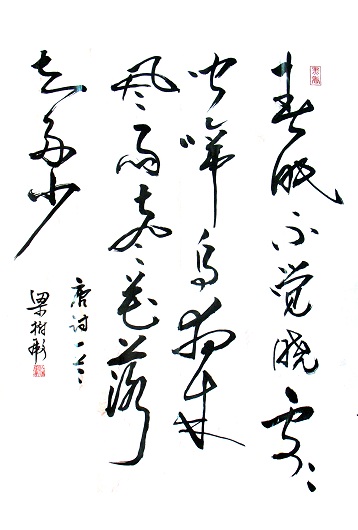 春眠不觉晓处〻
闻啼鸟夜来
风雨声花落
知多少
唐诗一首
梁树